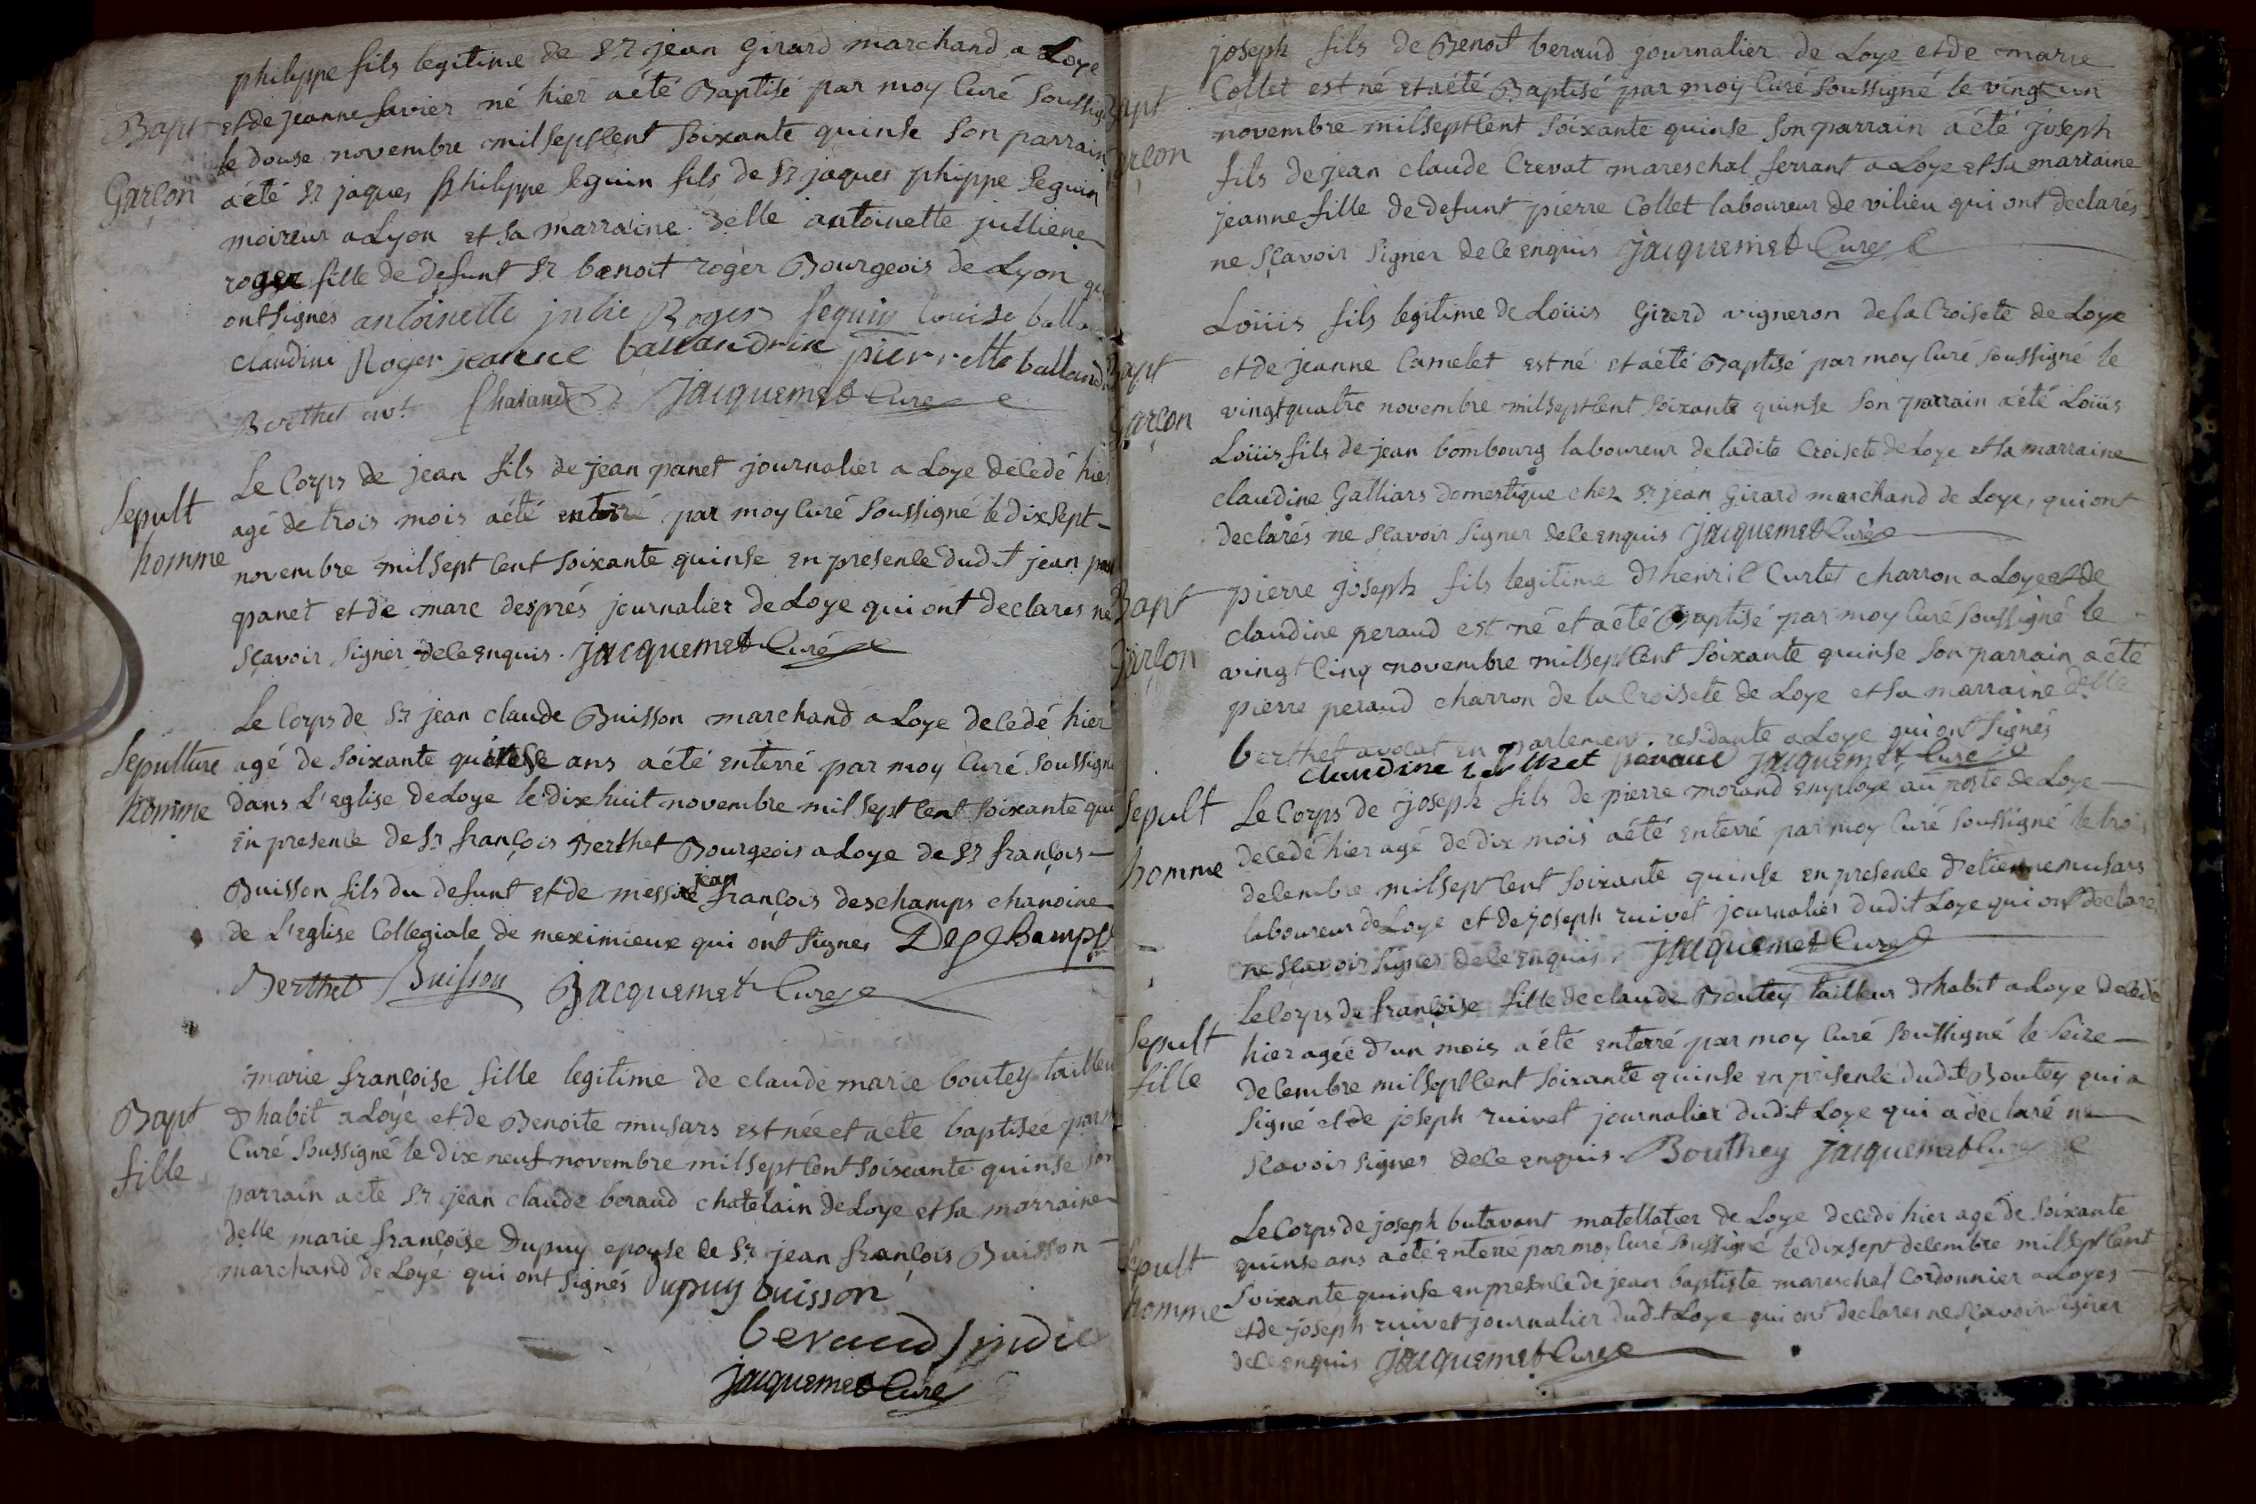 philippe fils legitime de Sr jean Girard marchand a Loye
Bapt et de jeanne favier né hier a été Baptisé par moy Curé soussig
le douse novembre mil sept Cent soixante quinse son parrain
Garçon a été Sr jaques philippe seguin fils de Sr jaques phippe seguin
moireur a Lyon et sa marraine delle antoinette jullienne
roger fille de defunt Sr benoit roger Bourgeois de Lyon qu
ont signés antoinette julie Roger seguin louise balla
claudine Roger jeanne ballandrin pierrette balland
Berthet avt Chaland jacquemet Curé
Le Corps de jean fils de jean panet journalier a Loye decedé hier
Sepult agé de trois mois a été enterré par moy Curé soussigné le dix sept
homme novembre mil sept Cent soixante quinse en presence dudit jean
panet et de marc després journalier de Loye qui ont declarés ne
sçavoir signer de ce enquis. jacquemet Curé
Le Corps de Sr jean claude Buisson marchand a Loye decedé hier
Sepulture agé de soixante quinse ans a été enterré par moy Curé soussigné
homme dans L'eglise de Loye le dix huit novembre mil sept Cent soixante qui
en presence de Sr françois Berthet Bourgeois a Loye de Sr françois
Buisson fils du defunt et de messire jean françois deschamps chanoine
de L'eglise Collegiale de meximieux qui ont signes Deschamps
Berthet Buisson jacquemet Curé
marie françoise fille legitime de claude marie boutey tailleu
Bapt d'habit a Loye et de Benoite musars est née et a été baptisée par m
fille Curé soussigné le dix neuf novembre mil sept Cent soixante quinse son
parrain a été Sr jean claude beraud chatelain de Loye et sa marraine
delle marie françoise Dupuy epouse de Sr jean françois Buisson
marchand de Loye qui ont signés Dupuy buisson
beraud sindic
jacquemet Curé
joseph fils de Benoit beraud journalier de Loye et de marie
Bapt Collet est né et a été Baptisé par moy Curé soussigné le vingt un
novembre mil sept Cent soixante quinse son parrain a été joseph
garçon fils de jean claude Crevat mareschal ferrant a Loye et sa marraine
jeanne fille de defunt pierre Collet laboureur de vilieu qui ont declarés
ne sçavoir signer de ce enquis jacquemet Curé
Loüis fils legitime de Loüis Girerd vigneron de la Croisete de Loye
Bapt et de jeanne Camelet est né et a été Baptisé par moy Curé soussigné le
garçon vingt quatre novembre mil sept Cent soixante quinse son parrain a été Loüis
Loüis fils de jean bombourg laboureur de ladite Croisete de Loye et sa marraine
claudine Galliars domestique chez Sr jean Girard marchand de Loye, qui ont
declarés ne sçavoir signer de ce enquis jacquemet Curé
Bapt pierre joseph fils legitime d'henri Curtet charron a Loye et de
claudine peraud est né et a été Baptisé par moy Curé soussigné le
garçon vingt Cinq novembre mil sept Cent soixante quinse son parrain a été
pierre peraud charron de la Croisete de Loye et sa marraine delle
berthet avocat en parlement residante a Loye qui ont signés
claudine peraud jacquemet Curé
Sepult Le Corps de joseph fils de pierre morand employé au poste de Loye
homme decedé hier agé de dix mois a été enterré par moy Curé soussigné le trois
decembre mil sept Cent soixante quinse en presence d'etienne musars
laboureur de Loye et de joseph ruivet journalier dudit Loye qui ont declarés
ne sçavoir signer de ce enquis jacquemet Curé
Le Corps de françoise fille de claude Boutey tailleur d'habit a Loye decedé
Sepult hier agée d'un mois a été enterré par moy Curé soussigné le seize
fille decembre mil sept Cent soixante quinse en presence dudit Boutey qui a
signé et de joseph ruivet journalier dudit Loye qui a declaré ne
sçavoir signer de ce enquis Bouthey jacquemet Curé
Le Corps de joseph butavant matellatier de Loye decedé hier agé de soixante
Sepult quinse ans a été enterré par moy Curé soussigné le dix sept decembre mil sept Cent
homme soixante quinse en presence de jean baptiste mareschal Cordonnier a Loyes
et de joseph ruivet journalier dudit Loye qui ont declares ne sçavoir signer
de ce enquis jacquemet Curé